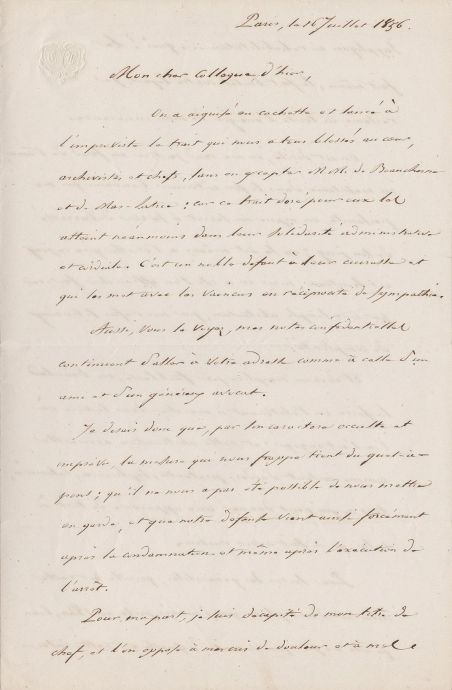 Paris, le 16 Juillet 1856.
Mon cher Collègue d'hier,
On a aiguisé en cachette et lancé à
l'improviste le trait qui nous a tous blessés au cœur,
archivistes et chefs, sans en excepter M.M. de
et de Mas-Latrie ; car ce trait doré pour eux
atteint néanmoins dans leur solidarité administrative
et cordiale. C'est un noble défaut à leur cuirasse et
qui les met avec les vaincus en réciprocité de sympathie.
Aussi, vous le voyez, mes notes confidentielles
continuent d'aller à votre adresse comme à celle d'un
ami et d'un généreux avocat.
Je disais donc que, par son caractère occulte et
imprévu, la mesure qui nous frappe tient du guet-à-
pens ; qu'il ne nous a pas été possible de nous mettre
en garde, et que notre défense vient ainsi forcément
après la condamnation et même après l'exécution de
l'arrêt.
Pour ma part, je suis décapité de mon titre de
chef, et l'on oppose à mes cris de douleur et à mes